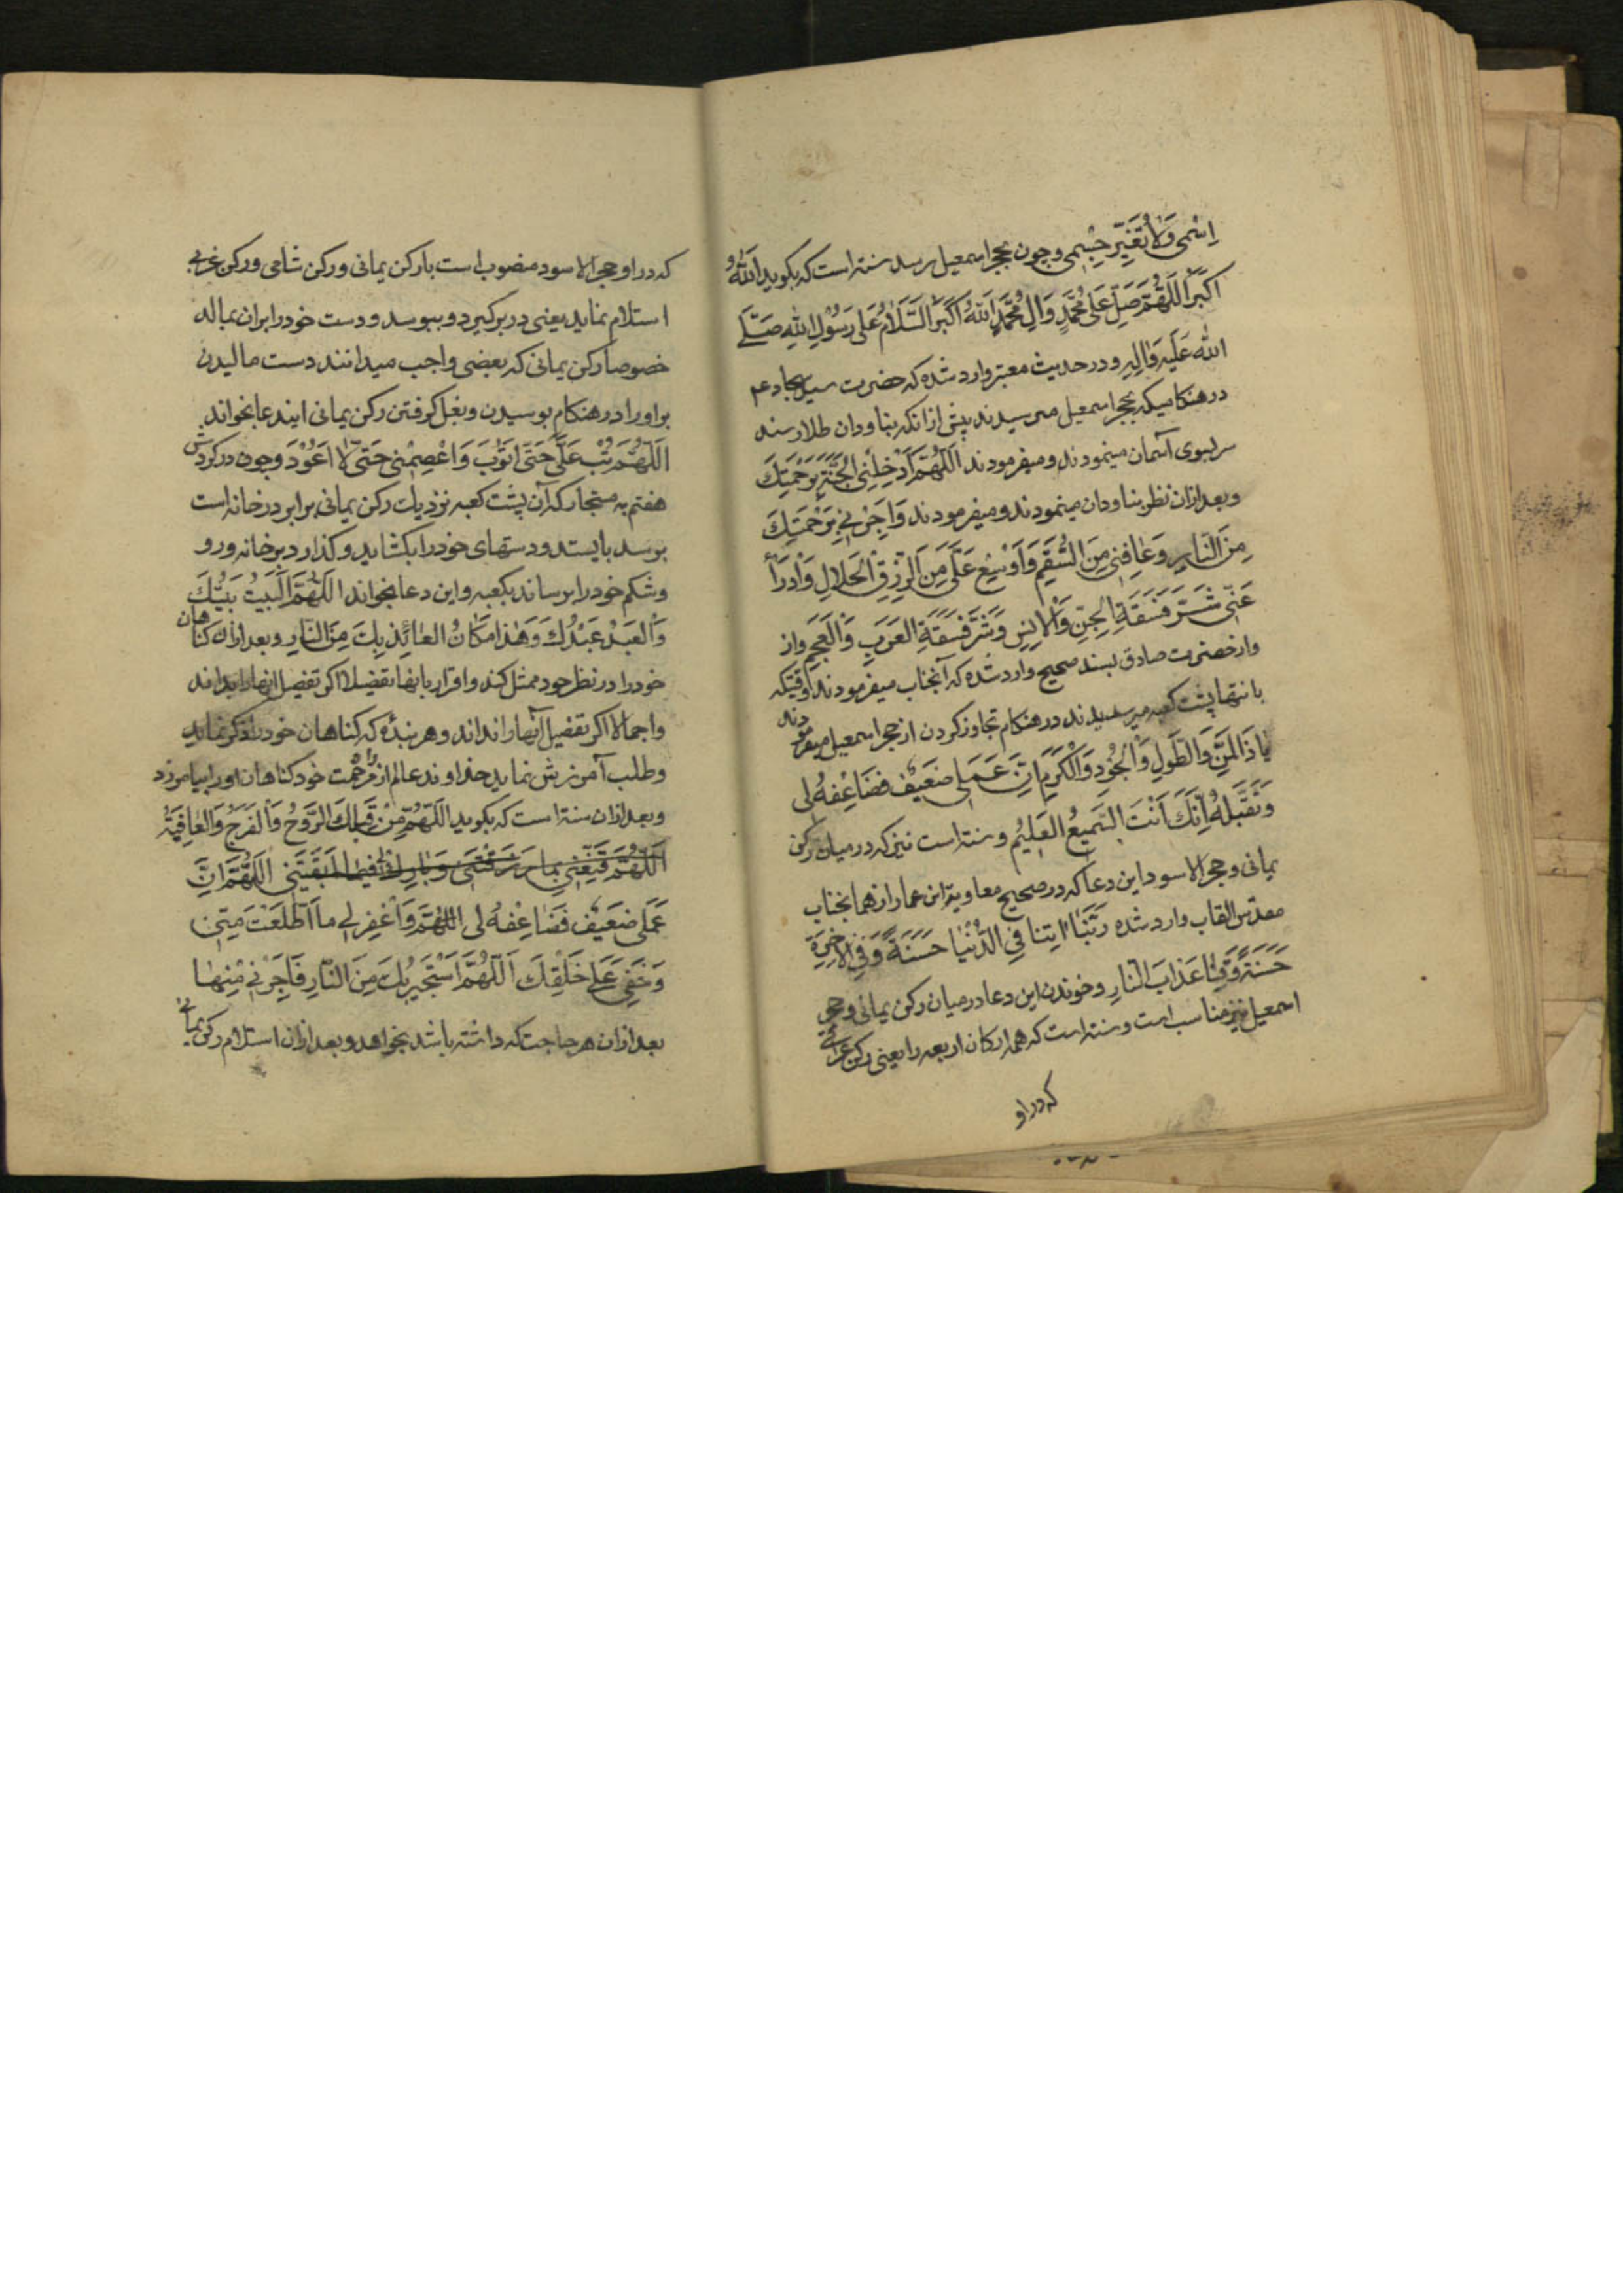 اِسْمی وَلاٰ تُغَیِّر جِسْمی وچون بحجر اسمعیل برسد سنت است که بکوید اَللّٰهُ
اَکْبَرُ اَللّٰهُمَّ صَلِّ عَلیٰ مُحَمَّدٍ وَاٰلِ مُحَمَّدٍ اَللّٰهُ اَکْبَرُ اَلسَّلاٰمُ عَلیٰ رَسُوْلِ اللّٰهِ صَلَّے
اللّٰهُ عَلَیْهِ وَاٰلِهِ ودر حدیث معتبر وارد شده که حضرت سید سجاد عم
در هنکامیکه بحجر اسمعیل میرسیدند پیش از انکه بناودان طلا رسند
سر بسوی آسمان مینمودند ومیفرمودند اَللّٰهُمَّ اَدْخِلْنِی الْجَنَّةَ بِرَحْمَتِكَ
وبعد ازان نظر بناودان مینمودند ومیفرمودند وَاَجِرْنِی بِرَحْمَتِكَ
مِنَ النّٰارِ وَعٰافِنِی مِنَ السُّقْمِ وَاَوْسِعْ عَلَیَّ مِنَ الرِّزْقِ الْحَلاٰلِ وَادْرَأْ
عَنّی شَرَّ فَسَقَةِ الْجِنِّ وَالْاِنْسِ وَشَرَّ فَسَقَةِ العَرَبِ وَالْعَجَمِ واز
واز حضرت صادق بسند صحیح وارد شده که آنجناب میفرمودند وقتیکه
بانتها پشت کعبه میرسیدند در هنکام تجاوز کردن از حجر اسمعیل میفرمودند
یٰا ذَالْمَنِّ وَالطَّوْلِ وَالْجُوْدِ وَالْکَرَمِ اِنَّ عَمَلی ضَعیْف فَضٰاعِفْهُ لی
وَتَقَبَّلْهُ اِنَّكَ اَنْتَ السَّمیعُ العَلیْم وسنت است نیز که در میان رکن
یمانی وحجر الاسود این دعا که در صحیح معاویة ابن عمار از هما بجناب
مقدس القاب وارد شده رَبَّنٰا اٰتِنٰا فِی الدُّنْیٰا حَسَنَةً وَفِی الْاٰخِرَةِ
حَسَنَةً وَقِنٰا عَذٰابَ النّٰارِ وخوندن این دعا در میان رکن یمانی وحجر
اسمعیل نیز مناسب است وسنت است که همه ارکان اربعه را یعنی رکن عراقی
که در او
که در او حجر الاسود منصوب است بارکن یمانی ورکن شامی ورکن غربی
استلام نماید یعنی در بر کیرد وببوسد ودست خود را بران بمالد
خصوصاً رکن یمانی که بعضی واجب میدانند دست مالیدن
براورا در هنکام بوسیدن وبغل کرفتن رکن یمانی ایندعا بخواند
اَللّٰهُمَّ تُبْ عَلَیَّ حَتّیٰ اَتُوْبَ وَاعْصِمْنی حَتّیٰ لاٰ اَعُوْدَ وچون در کردش
هفتم به مستجار که آن پشت کعبه نزدیك رکن یمانی برابر در خانه است
برسد بایستد ودستهای خود را بکشاید وکذارد بر خانه ورو
وشکم خود را برساند بکعبه واین دعا بخواند اَللّٰهُمَّ اَلْبَیْتُ بَیْتُكَ
وَالعَبْدُ عَبْدُكَ وَهٰذا مَکٰانُ العٰائِذِ بِكَ مِنَ النّٰارِ وبعد ازان کناهان
خود را در نظر خود ممثل کند واقرار بانها تفضیلا اکر تفصیل انها را بداند
واجمالا اکر تفضیل آنها را نداند وهر بنده که کناهان خود را ذکر نماید
وطلب آمرزش نماید خداوند عالم از مرحمت خود کناهان اورا بیامرزد
وبعد ازان سنت است که بکوید اَللّٰهُمَّ مِنْ قِبَلِكَ الرَّوْحُ وَالْفَرَجُ وَالْعٰافِیَةُ
اَللّٰهُمَّ قَنِّعْنی بِمٰا رَزَقْتَنی وَبٰارِك لی فیمٰا اَبْقَیْتَنی اَللّٰهُمَّ اِنَّ
عَمَلی ضَعیْف فَضٰاعِفْهُ لی اَللّٰهُمَّ وَاغْفِر لی مٰا اَطَّلَعْتَ مِنّی
وَخَفِیَ عَلیٰ خَلْقِكَ اَللّٰهُمَّ اَسْتَجیرُ بِكَ مِنَ النّٰارِ فَاَجِرْنی مِنْهٰا
بعد ازان هر حاجت که داشته باشد بخواهد وبعد ازان استلام رکن یمانی